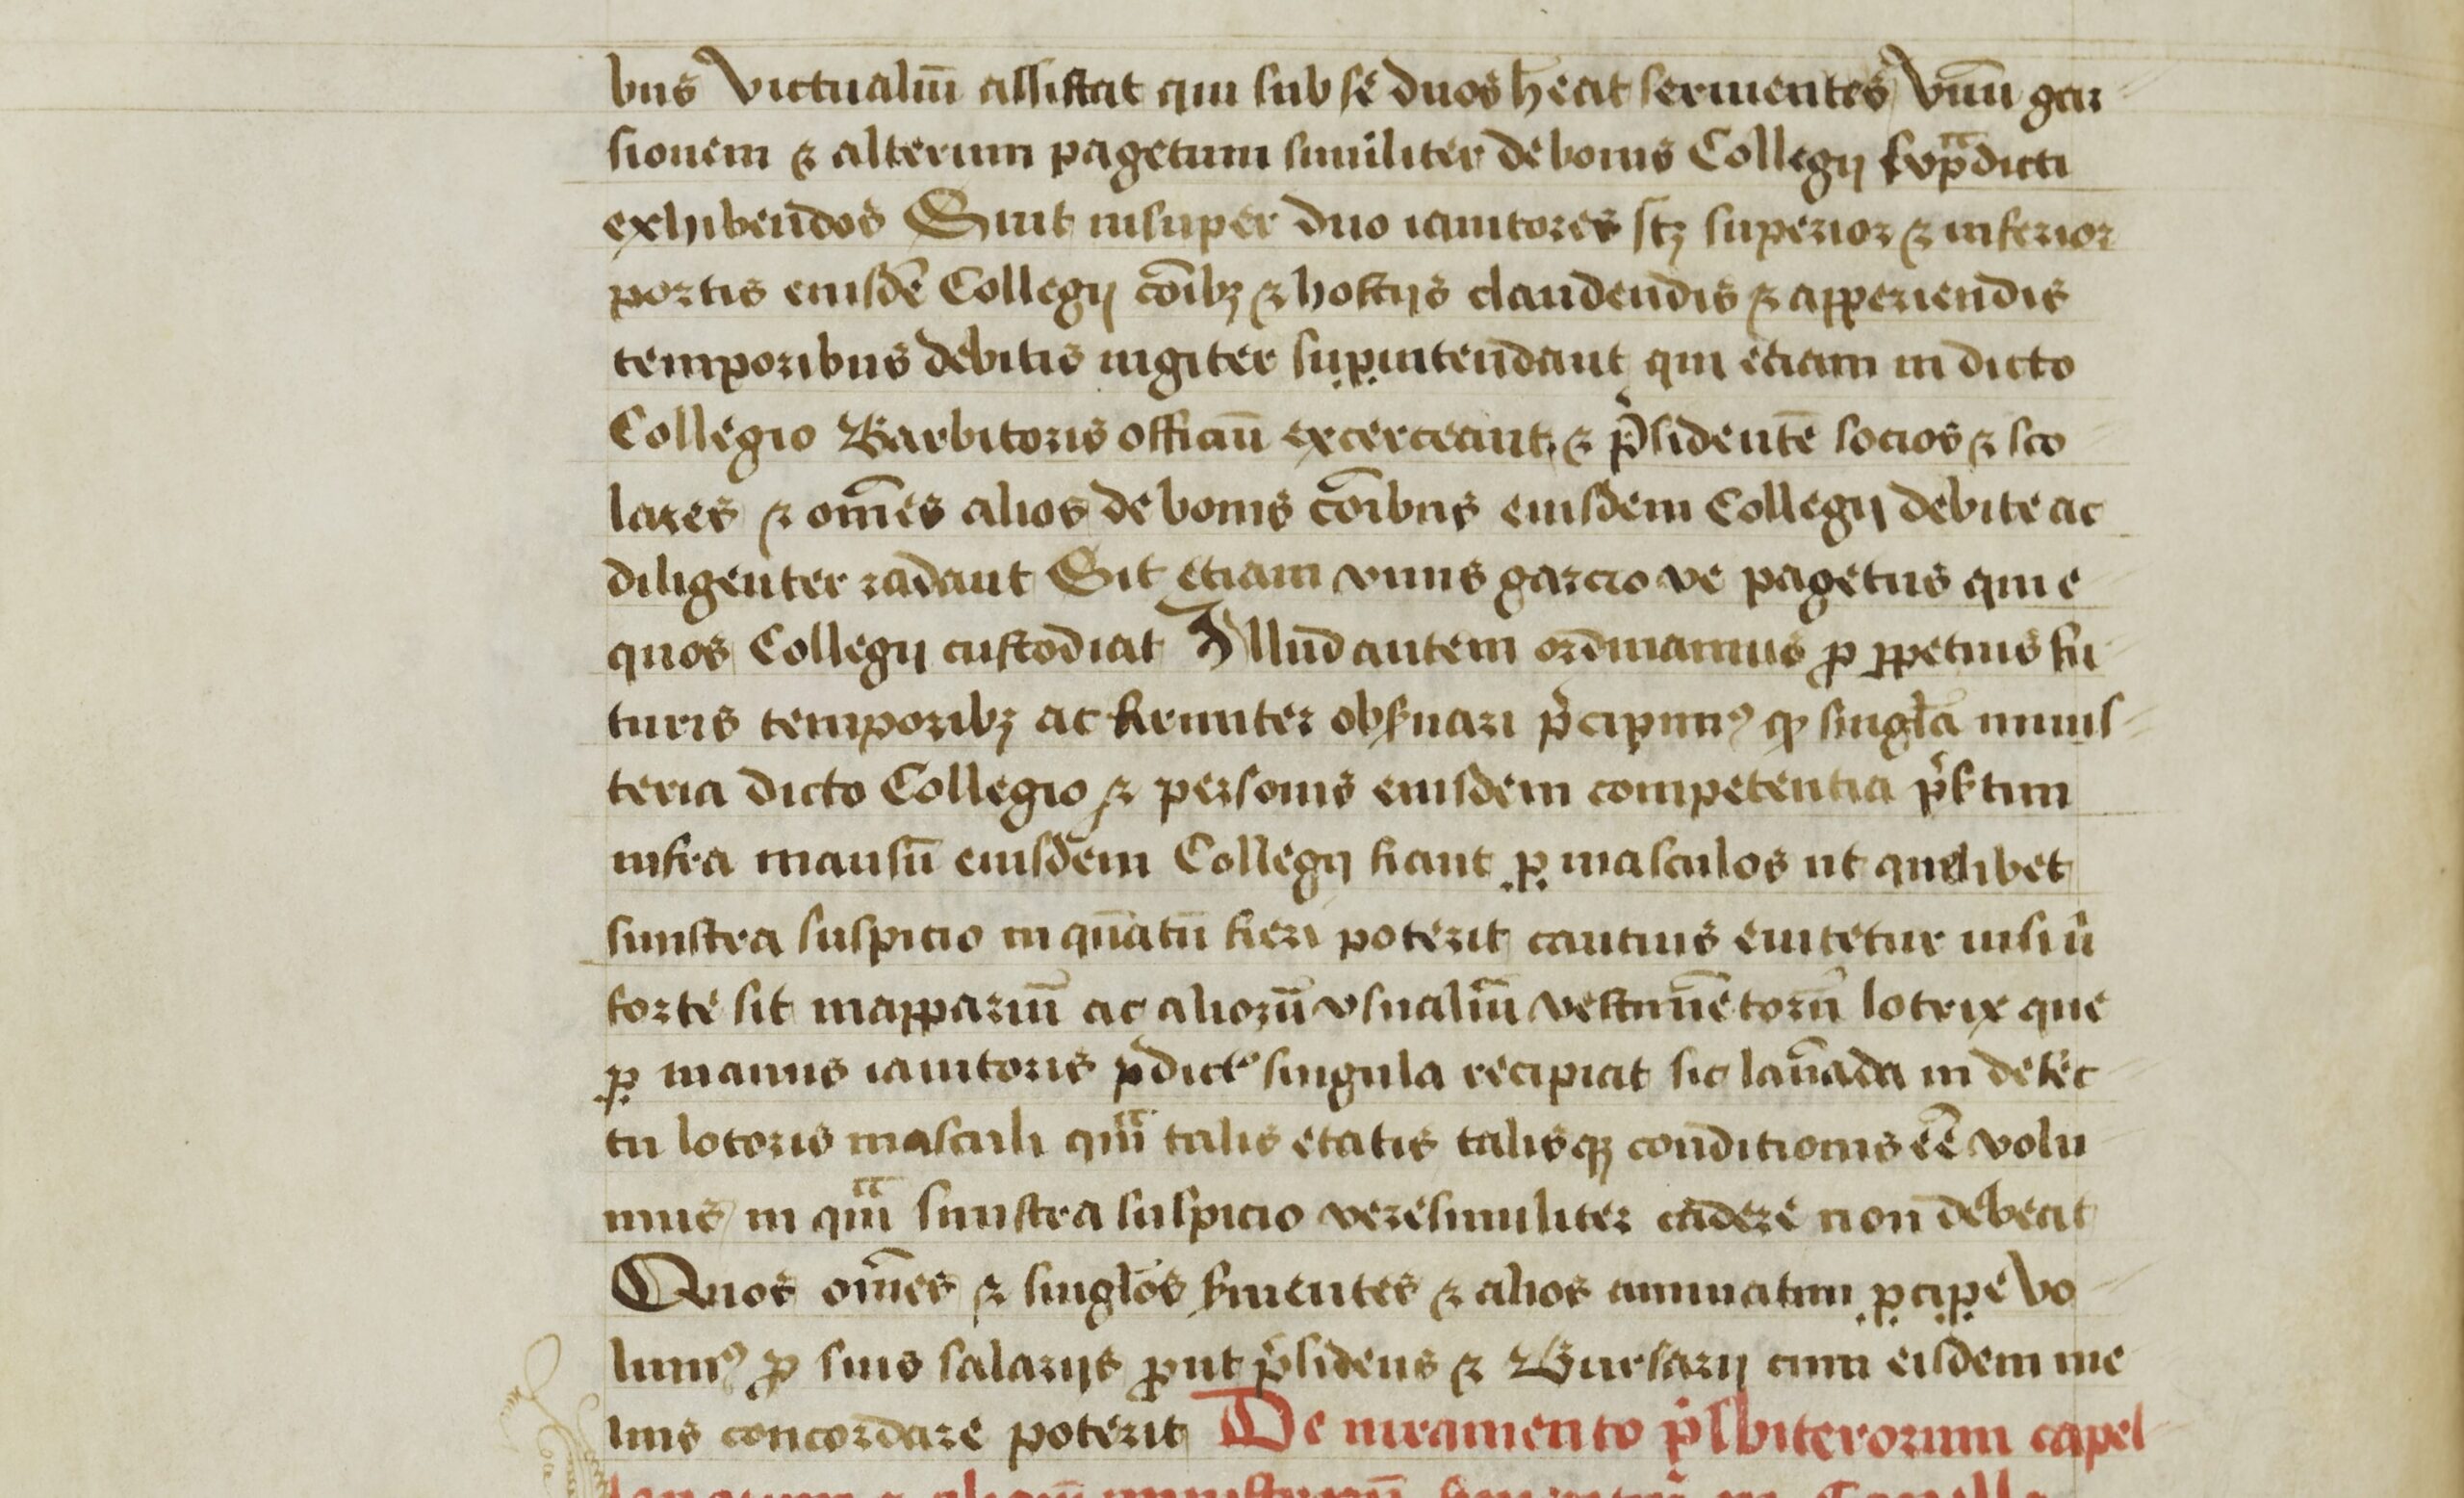 bus victualiū assistat qui sub se duos h̄eat seruientes vnū gar
sionem ⁊ alterum pagetum similiter de bonis Collegij sup̄dicti
exhibendos Sint insuper duo ianitores scꝫ superior ⁊ inferior
portis eiusdē Collegij cōibꝫ ⁊ hostijs claudendis ⁊ apperiendis
temporibus debitis iugiter suꝑintendant qui etiam in dicto
Collegio Barbitoris officiū excerceant ⁊ p̄sidentē socios ⁊ sco
lares ⁊ om̄es alios de bonis cōibus eiusdem Collegij debite ac
diligenter radant Sit etiam vnus garcio ve pagetus qui e
quos Collegij custodiat Illud autem ordinamus ꝓ ꝑpetuis fu
turis temporibꝫ ac firmiter obs̄uari p̄cipimꝰ ꝙ singl̄a minis
teria dicto Collegio ⁊ personis eiusdem competentia p̄fertim
infra mansū eiusdem Collegij fiant ꝑ masculos ut quelibet
sinistra suspicio in quātū fieri poterit cautius euitetur nisi ū
forte sit mapparū ac aliorū vsualiū vestimētorū lotrix que
ꝑ manus ianitoris p̄dictꝭ singula recipiat sic lauāda in defec
tu lotoris masculi quā talis etatis talisqꝫ conditionis eē̄ volu
mus in quā sinistra suspicio veresimiliter cadere non debeat
Quos om̄es ⁊ singl̄os s̄uientes ⁊ alios annuatim ꝑciꝑe vo
lumꝰ ꝓ suis salarijs ꝓut p̄sidens ⁊ Bursarij cum eisdem me
lius concordare poterit De iuramento p̄sbiterorum capel